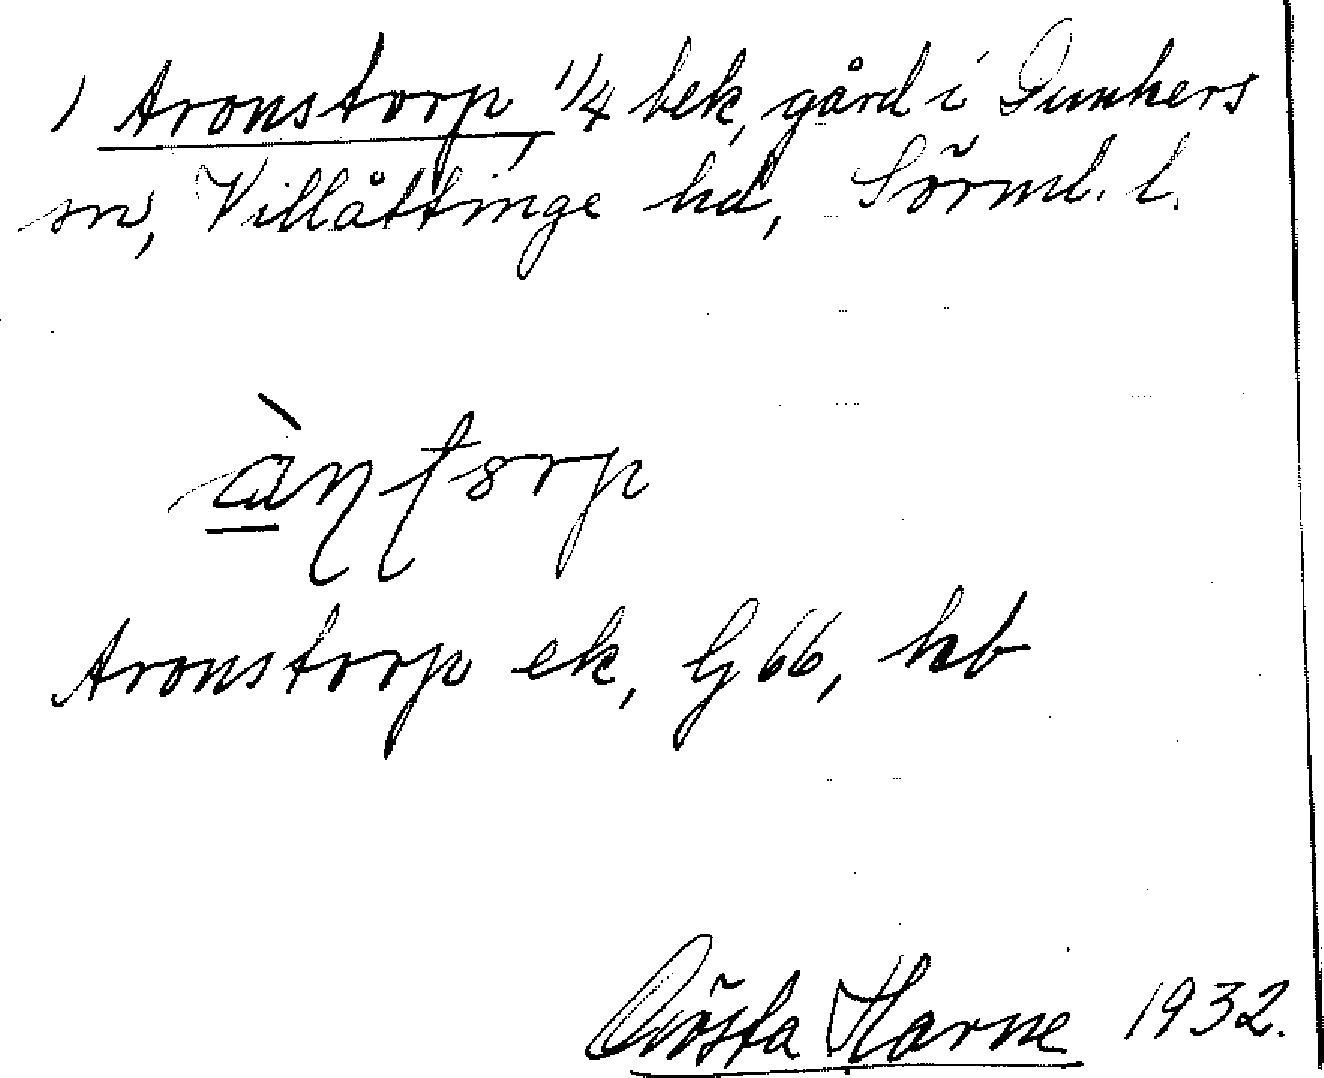 1 Aronstorp, 1/4 bek, gård i Dunkers
sn, Villåttinge hd, Sörml. l.
àɳʈsrp
Aronstorp ek, G 66, hb
Gösta Harne 1932.